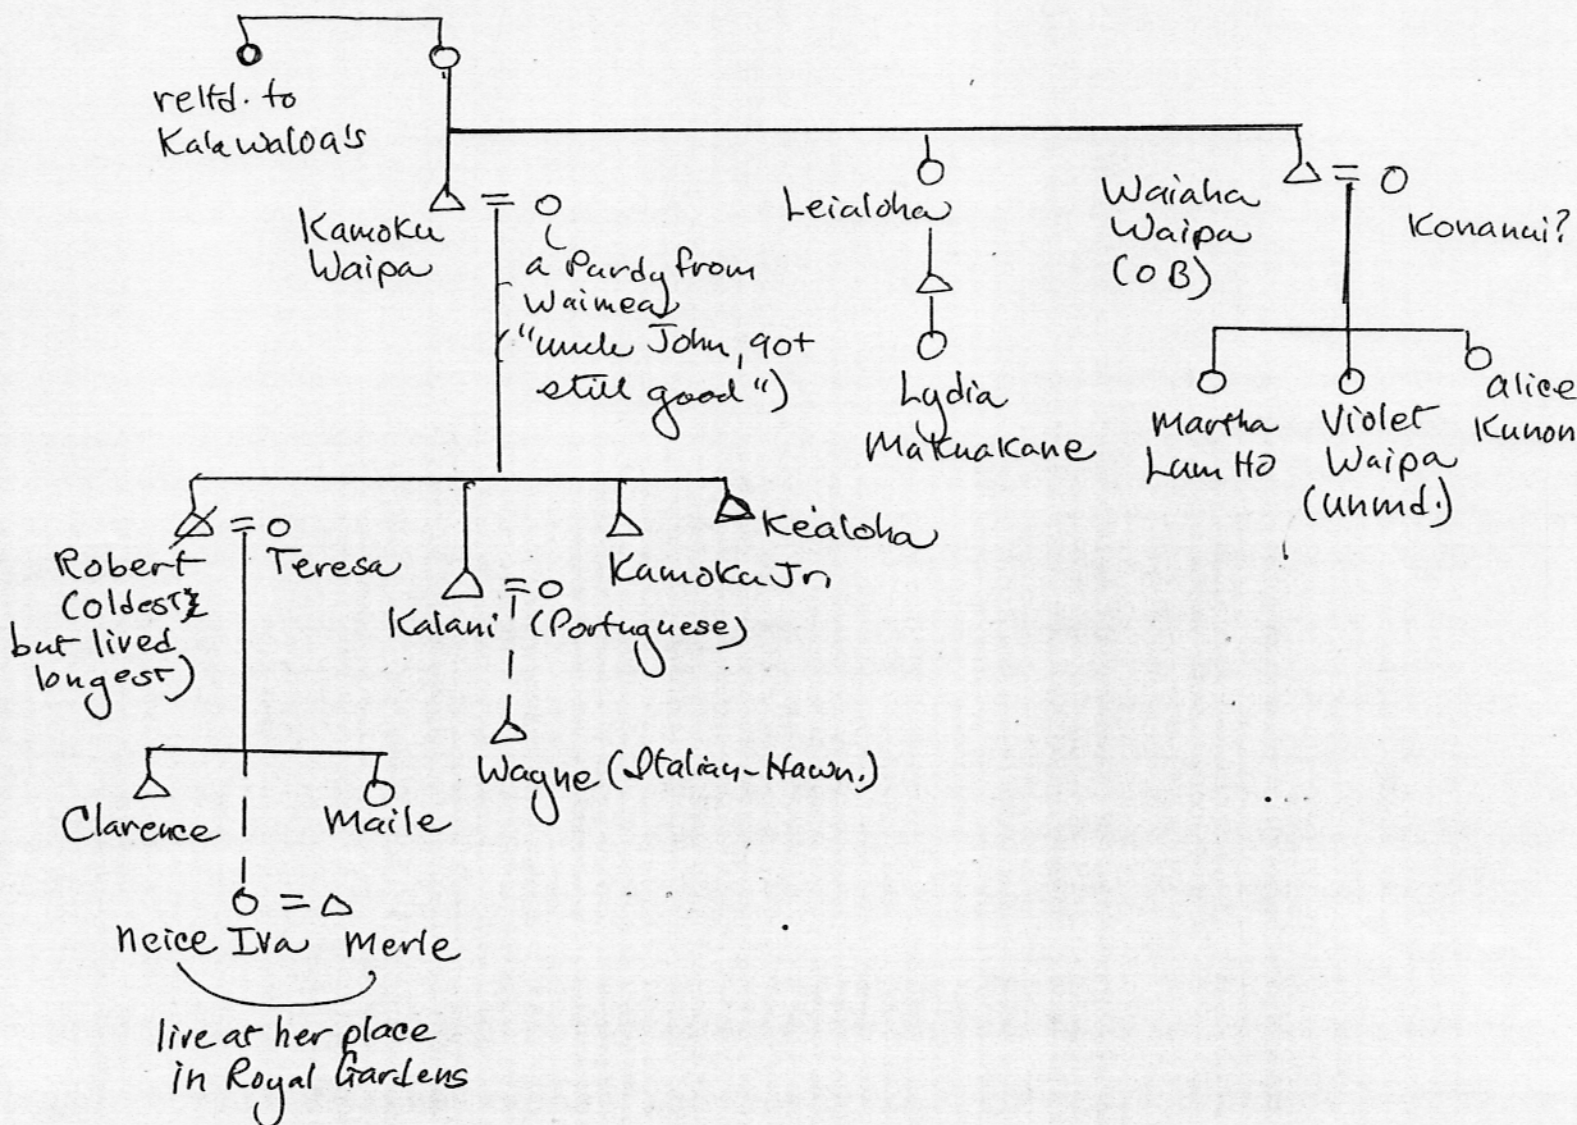 reltd. to
Kalawaloa's
Kamoku
Waipa
a Purdy from
Waimea
("uncle John, got
still good")
Leialoha
Lydia
Makuakane
Waiaha
Waipa
(OB)
Konanui?
Martha
Lum Ho
Violet
Waipa
(unmd.)
alice
Kunon
Robert
(oldest
but lived
longest)
Teresa
Kalani (Portuguese)
Kamoku Jr
Kealoha
Clarence
Maile
Wayne (Italian-Hawn.)
neice Iva
Merle
live at her place
in Royal Gardens